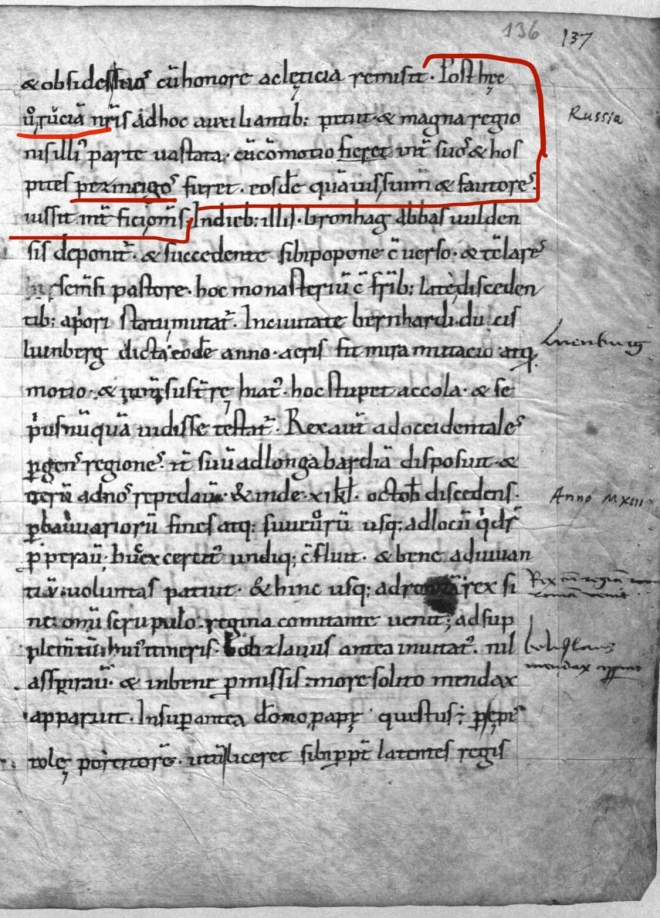 136 137
& obsides suos cū honore ac lęticia remisit. Post hęc
ū ruciā nr̄is ad hoc auxiliantib; petiit & magna regio
nis illi parte vastata cū cōmotio fieret int̄ suos & hos
pites pezineigos fieret eosdē quāvis sium & fautores
iussit int̄ fici oms. In dieb; illis bronhag abbas vulden
sis deponit̄. & succedente sibi popone c̄verso &
pastore. hoc monasteriū c̄ fr̄ib; late disceden
tib; a p̄ori statu mutat̄. In civitate bernhardi ducis
luenberg dicta eodē anno. aeris fit mira mutacio atq;
motio. & hiat̄. hoc stupet accola & se
p̄us nūquā vidisse testat̄. Rex aut̄ ad occidentales
p̄gens regiones. it̄ suū ad longabardiā disposuit &
iterū ad nos repedavit. & inde xi kl̄. octob̄ discedens.
p̄ bavvariorū fines atq; suueuorū usq; ad locū
undiq; c̄fluit. & bene adiuvan
tiū voluntas patuit. & hinc usq; ad romā rex si
ne omī scrupulo. regina comitante venit; ad sup
itineris. bolizlavus antea invitat̄. nil
aspiravit & in bene p̄missis more solito mendax
apparuit. Insup antea domno papę questus;
latentes regis
Russia
Luenburg
Anno MXIII
Rex
Boleslaus
mendax